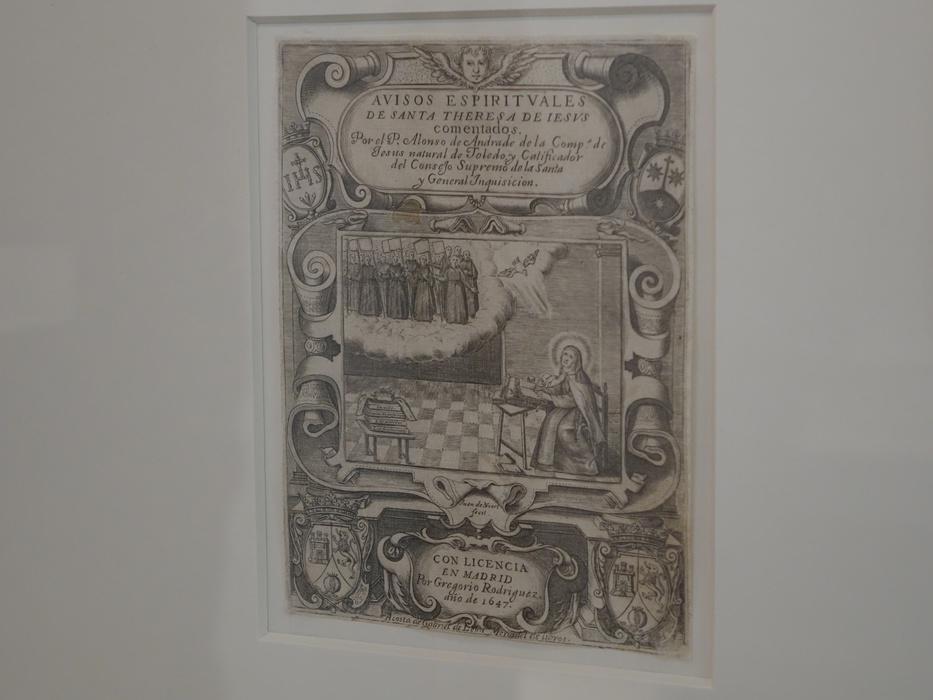 AVISOS ESPIRITVALES
DE SANTA THERESA DE IESVS
comentados.
Por el P. Alonso de Andrade de la Comp.ª de
Jesus natural de Toledo y Calificador
del Consejo Supremo de la Santa
y General Inquisicion.
IHS
Juan de Noort
fecit
CON LICENCIA
EN MADRID
Por Gregorio Rodriguez.
año de 1647.
Acosta de Gabriel de Leon